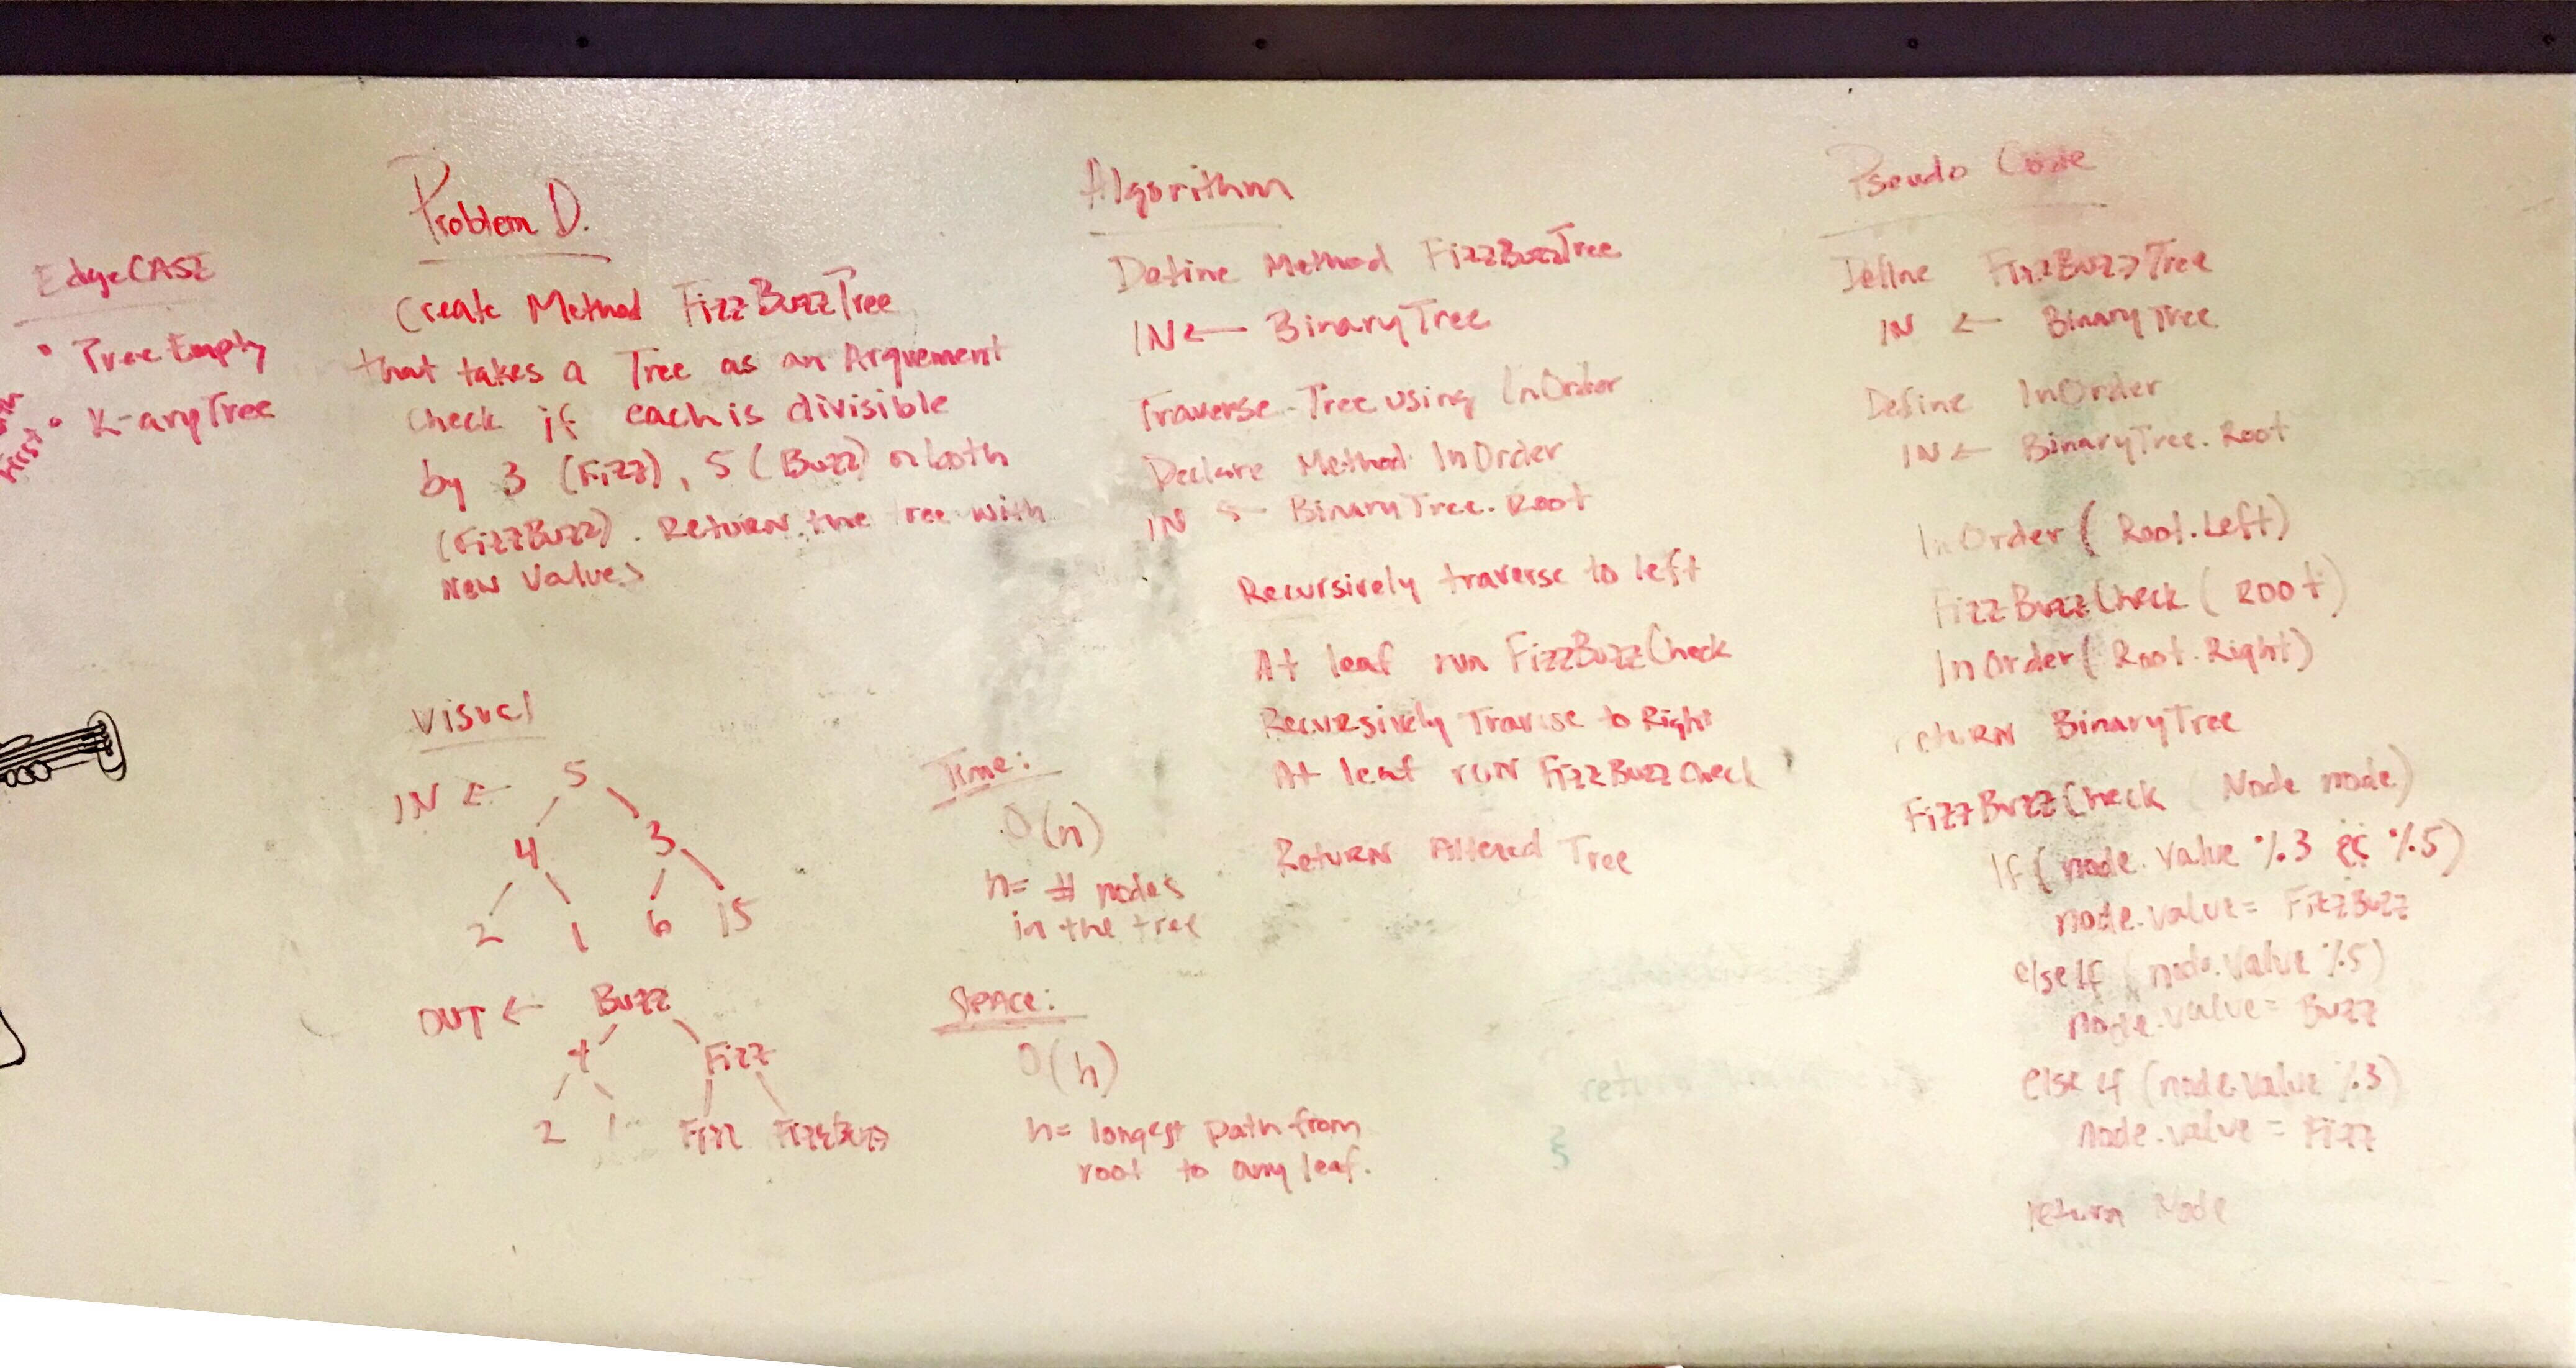 EdgeCASE
• Tree Empty
• K-aryTree
First
Problem D.
Create Method FizzBuzzTree
that takes a Tree as an Arguement
check if each is divisible
by 3 (Fizz), 5 (Buzz) or both
(FizzBuzz). Return the tree with
New Values
Visual
IN ←
5
4 3
2 1 6 15
OUT ←
Buzz
4 Fizz
2 1 Fizz FizzBuzz
Time:
O(n)
n= # nodes
in the tree
Space:
O(h)
h= longest path from
root to any leaf.
Algorithm
Define Method FizzBuzzTree
IN ← BinaryTree
Traverse Tree using InOrder
Declare Method InOrder
IN ← BinaryTree.Root
Recursively traverse to left
At leaf run FizzBuzzCheck
Recursively Traverse to Right
At leaf run FizzBuzzCheck
Return Altered Tree
return
Pseudo Code
Define FizzBuzzTree
IN ← BinaryTree
Define InOrder
IN ← BinaryTree.Root
InOrder(Root.Left)
FizzBuzzCheck(Root)
InOrder(Root.Right)
return BinaryTree
FizzBuzzCheck (Node node)
If (node.value %3 && %5)
node.value = FizzBuzz
elseIf (node.value %5)
node.value = Buzz
else if (node.value %3)
node.value = Fizz
return Node